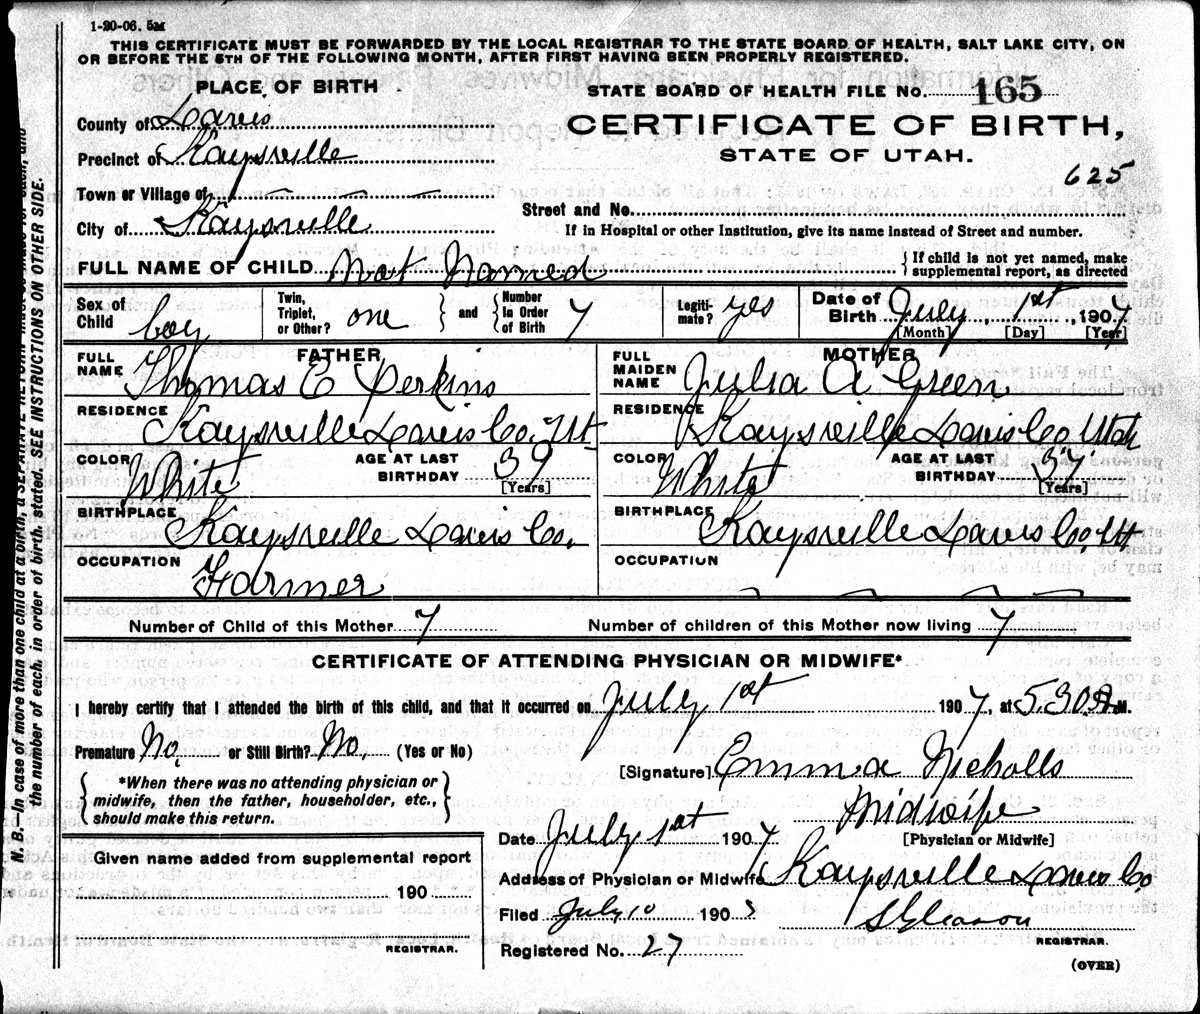 1-20-06. 5M
THIS CERTIFICATE MUST BE FORWARDED BY THE LOCAL REGISTRAR TO THE STATE BOARD OF HEALTH, SALT LAKE CITY, ON
OR BEFORE THE 5TH OF THE FOLLOWING MONTH, AFTER FIRST HAVING BEEN PROPERLY REGISTERED.
PLACE OF BIRTH
STATE BOARD OF HEALTH FILE NO. 165
County of Davis
CERTIFICATE OF BIRTH,
Precinct of Kaysville
STATE OF UTAH.
625
Town or Village of
Street and No.
City of Kaysville
If in Hospital or other Institution, give its name instead of Street and number.
FULL NAME OF CHILD Not Named
If child is not yet named, make
supplemental report, as directed
Sex of Child boy
Twin, Triplet, or Other? one and Number In Order of Birth 7
Legitimate? yes
Date of Birth July 1st, 1907
[Month] [Day] [Year]
FATHER
MOTHER
FULL NAME Thomas E Perkins
FULL MAIDEN NAME Julia A Green
RESIDENCE Kaysville Davis Co. Ut
RESIDENCE Kaysville Davis Co Utah
COLOR White AGE AT LAST BIRTHDAY 39 [Years]
COLOR White AGE AT LAST BIRTHDAY 37 [Years]
BIRTHPLACE Kaysville Davis Co.
BIRTHPLACE Kaysville Davis Co. Ut
OCCUPATION Farmer
OCCUPATION
Number of Child of this Mother 7
Number of children of this Mother now living 7
CERTIFICATE OF ATTENDING PHYSICIAN OR MIDWIFE*
I hereby certify that I attended the birth of this child, and that it occurred on July 1st 1907, at 5.30 A M.
Premature No. or Still Birth? No. (Yes or No)
*When there was no attending physician or
midwife, then the father, householder, etc.,
should make this return.
[Signature] Emma Nicholls
Midwife
[Physician or Midwife]
Date July 1st 1907
Given name added from supplemental report
190
REGISTRAR.
Address of Physician or Midwife Kaysville Davis Co
Filed July 10 190
S Gleason
REGISTRAR.
Registered No. 27
(OVER)
N. B.—In case of more than one child at a birth, a SEPARATE RETURN must be made for each, and
the number of each, in order of birth, stated. SEE INSTRUCTIONS ON OTHER SIDE.